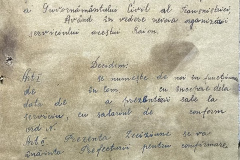 a Guvernământului Civil al Transnistriei
Având in vedere noua organizare
serviciului acestui Raion.
Decidem:
Art. I se numește de noi in funcțiunea
de in com. cu incepere dela
data de a prezentării sale la
serviciu, cu salariul de conform
ord. N.
Art. II Prezenta Deciziune se va
inainta Prefecturii pentru confirmare